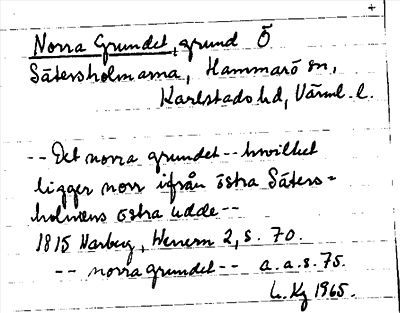 Norra Grundet, grund Ö
Sätersholmarna, Hammarö sn,
Karlstads hd, Värml. l.
-- Det norra grundet -- hwilket
ligger norr ifrån östra Säters=
holmens östra udde --
1815 Warberg, Wenern 2, s. 70.
-- norra grundet -- a.a.s. 75.
1965.